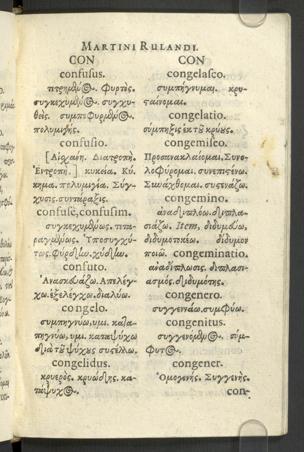 MARTINI RULANDI.
CON
confusus.
πεφυρμένος. Φυρτὸς.
συγκεχυμένος. συγχυ-
θεὶς. συμπεφυρμένος.
πολυμιγής.
confusio.
[Αἰσχύνη. Διατροπὴ.
Ἐντροπὴ.] κυκεία. Κύ-
κημα. πολυμιγία. Σύγ-
χυσις. συντάραξις.
confusè, confusim.
συγκεχυμένως.
Ὑποσυγχύ-
τως. φύρδην. χύδην.
confuto.
Ἀνασκευάζω. Ἀπελέγ-
χω. ἐξελέγχω. διαλύω.
congelo.
συμπηγνύω, υμι. καταπη-
γνύω, υμι. καταψύχω
διὰ τῦ ψύχης συστέλλω.
congelidus.
κρυερὸς. κρυώδης. κα-
τάψυχος.
CON
congelasco.
συμπήγνυμαι. κρυ-
σταίνομαι.
congelatio.
σύμπηξις ἐκ τῦ κρύους.
congemisco.
Προσανακλαίομαι. Συνο-
λοφύρομαι. συνεπιστένω.
Συνάχθομαι. συστενάζω.
congemino.
ἀναδιπλόω. διπλα-
σιάζω. Item, διδυμάω,
διδυμοτοκέω. δίδυμον
ποιῶ. congeminatio.
ἀναδίπλωσις. διπλασι-
ασμός. διδυμότης.
congenero.
συγγεννάω. συμφύω.
congenitus.
συγγενόμενος. σύμ-
φυτος.
congener.
Ὁμογενής. Συγγενής.
con-